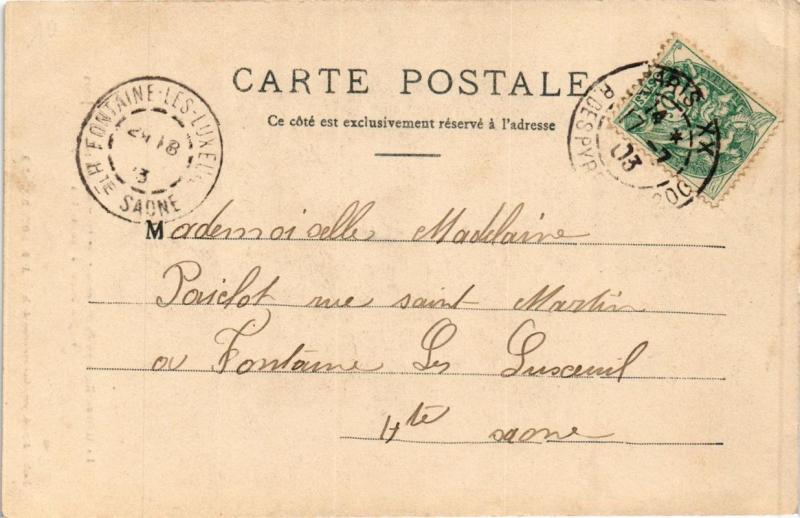 CARTE POSTALE
Ce côté est exclusivement réservé à l'adresse
FONTAINE-LES-LUXEUIL
Hte SAONE
PARIS XX
R. DES PYR
17 -7
03
Mademoiselle Madelaine
Paiclot rue saint Martin
a Fontaine Les Luxeuil
Hte saone